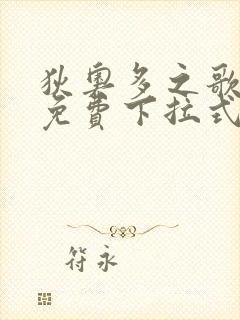 狄奧多之歌
免費下拉式
符永